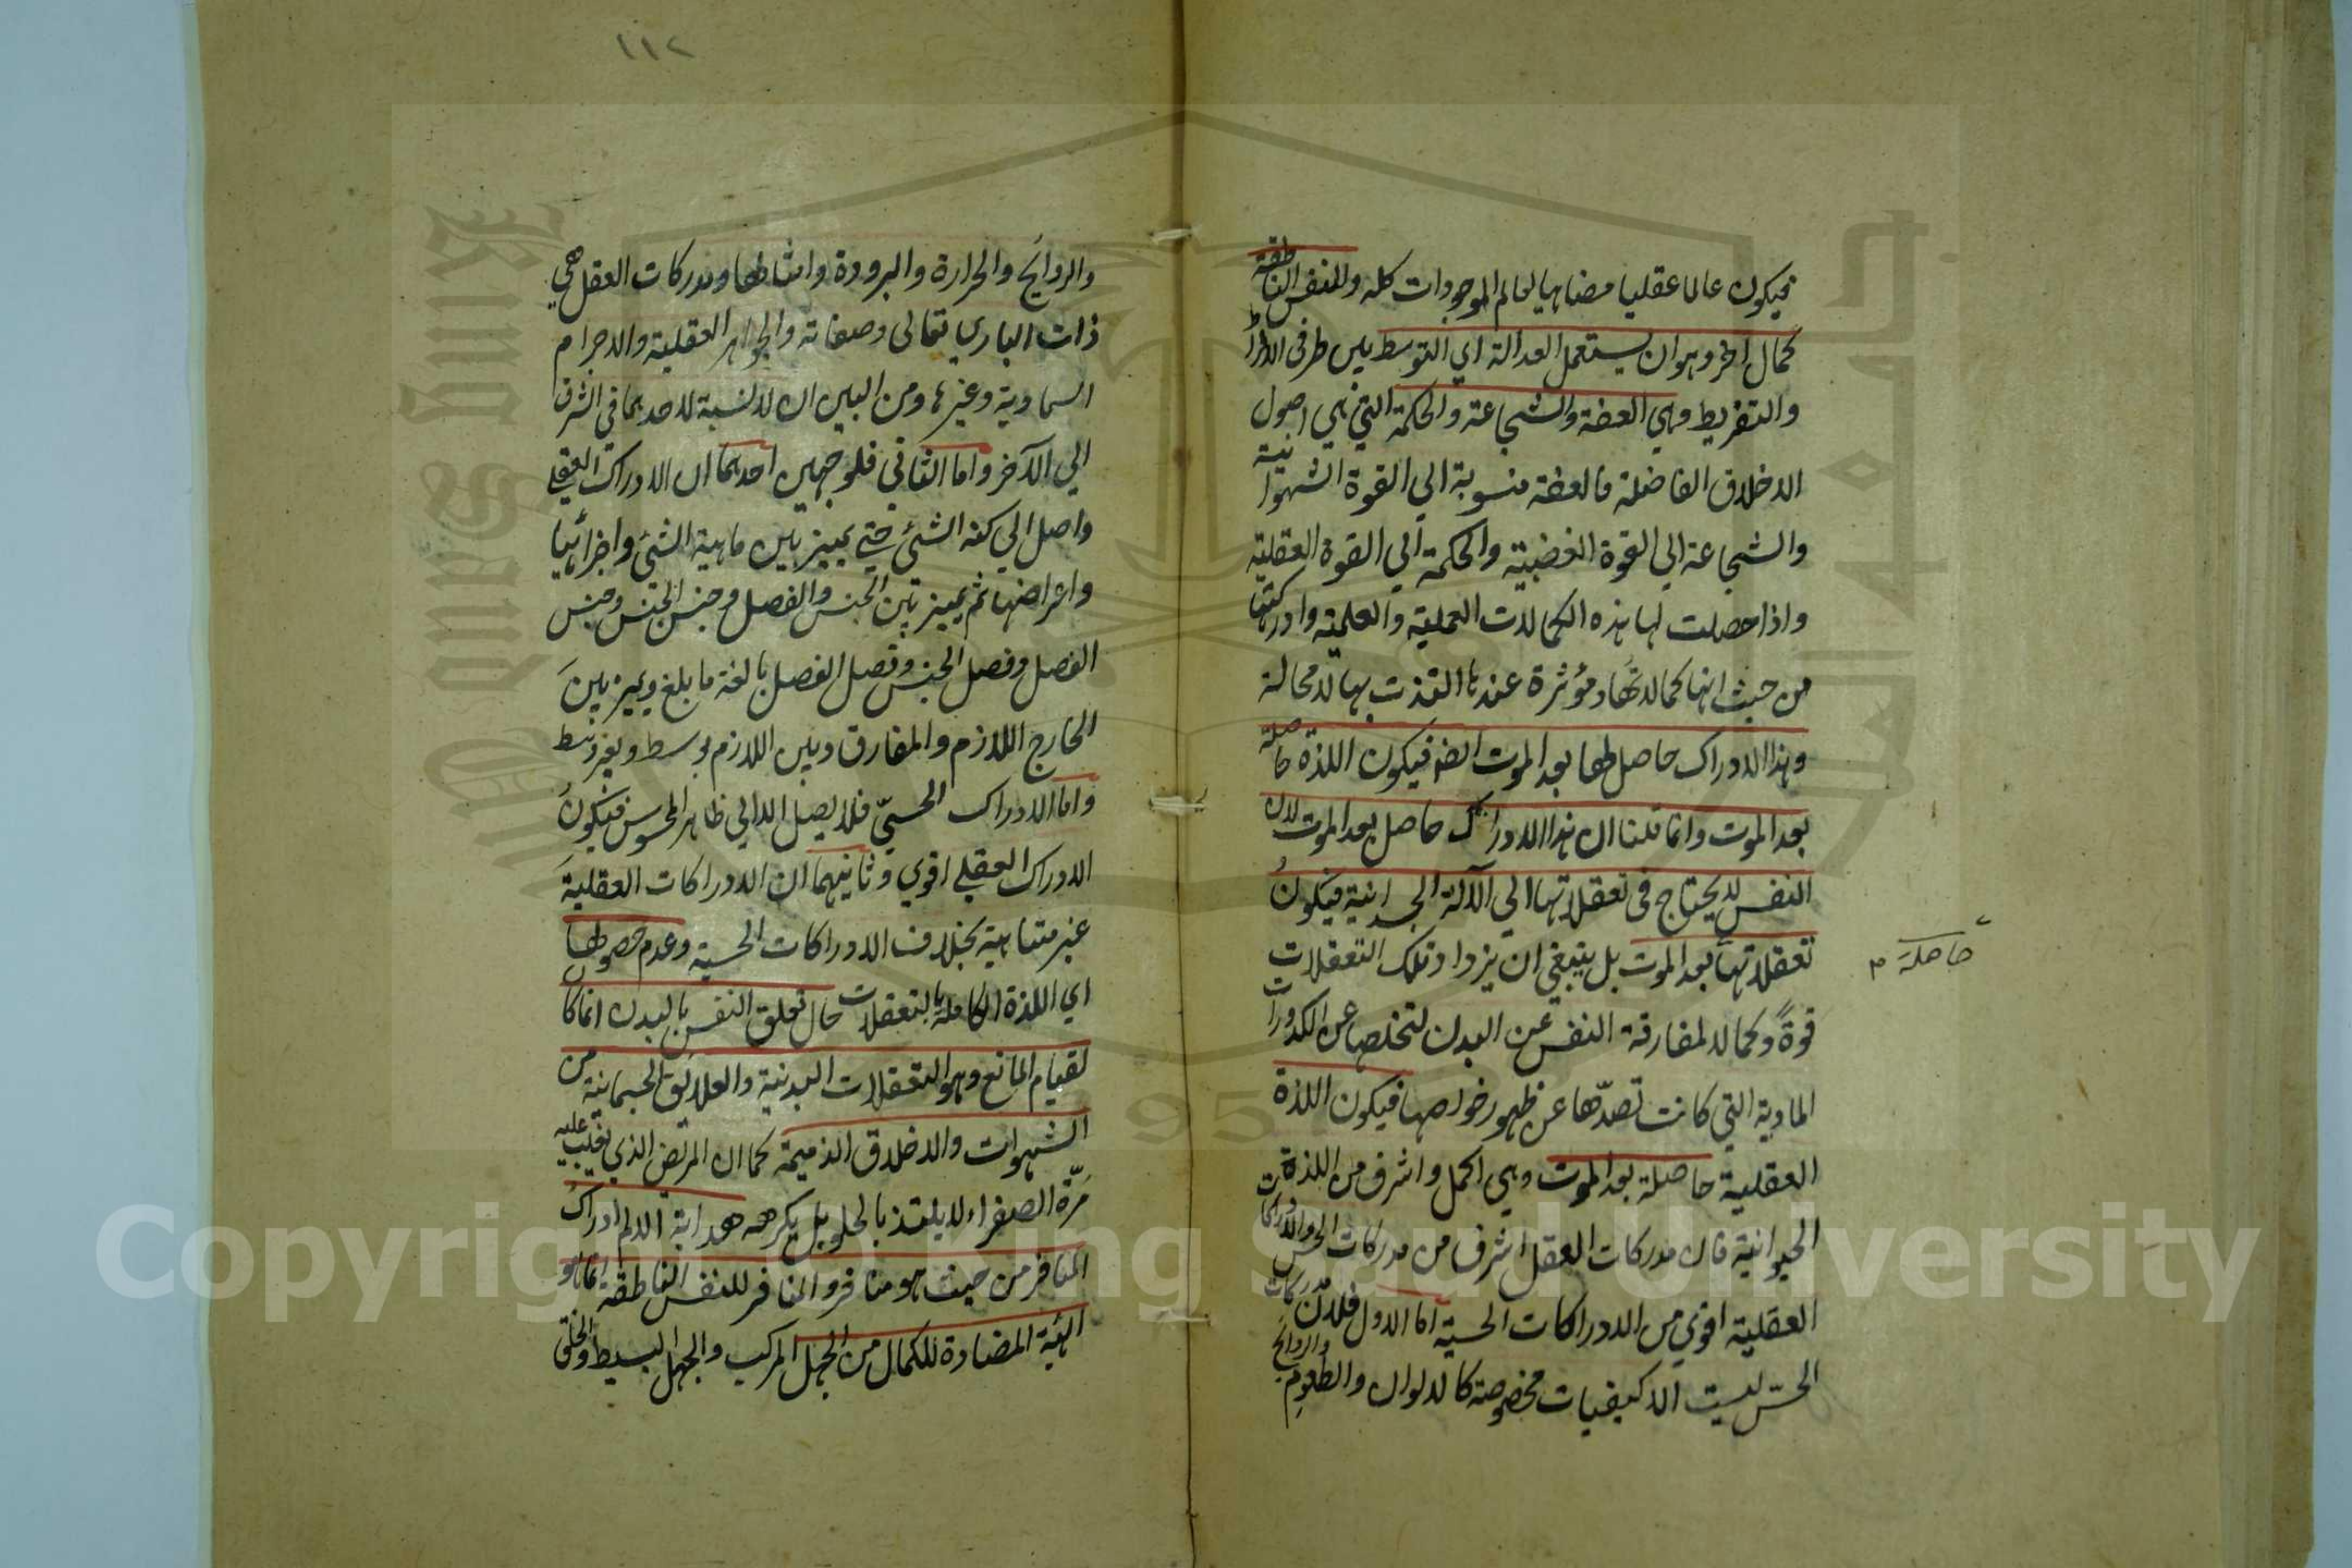 فيكون عالما عقليا مضاهيا لعالم الموجودات كله وللنفس الناطقة
كمال اخر وهو ان يستعمل العدالة اي التوسط بين طرفي الافراط
والتفريط وهي العفة والشجاعة والحكمة التي هي اصول
الاخلاق الفاضلة فالعفة منسوبة الي القوة الشهوانية
والشجاعة الي القوة الغضبية والحكمة الي القوة العقلية
واذا حصلت لها هذه الكمالات العملية والعلمية وادركتها
من حيث انها كمالاتها ومؤثرة عندها التذت بها لا محالة
وهذا الادراك حاصل لها بعد الموت ايضا فيكون اللذة حاصلة
بعد الموت وانما قلنا ان هذا الادراك حاصل بعد الموت لان
النفس لا يحتاج في تعقلاتها الي الآلة الجسدانية فيكون
تعقلاتها بعد الموت بل ينبغي ان يزداد تلك التعقلات
حاصلة م
قوةً وكمالا لمفارقة النفس عن البدن لتخلصها عن الكدورات
المادية التي كانت تصدّها عن ظهور خواصها فيكون اللذة
العقلية حاصلة بعد الموت وهي اكمل واشرف من اللذة
الحيوانية فان مدركات العقل اشرف من مدركات الحس والادراكات
العقلية اقوي من الادراكات الحسية اما الاول فلان مدركات
الحسّ ليست الا كيفيات مخصوصة كالالوان والطعوم والروائح
١١٢
والروائح والحرارة والبرودة وامثالها ومدركات العقل هي
ذات الباري تعالى وصفاته والجواهر العقلية والاجرام
السماوية وغيرها ومن البين ان لا نسبة لاحدهما في الشرف
الي الآخر واما الثاني فلوجهين احدهما ان الادراك العقلي
واصل الي كنه الشئ حتي يميز بين ماهية الشئ واجزائها
واعراضها ثم يميز بين الجنس والفصل وجنس الجنس وجنس
الفصل وفصل الجنس وفصل الفصل بالغة ما بلغ ويميز بين
الخارج اللازم والمفارق وبين اللازم بوسط وبغير وسط
واما الادراك الحسيّ فلا يصل الا الي ظاهر المحسوس فيكون
الادراك العقلي اقوي وثانيهما ان الادراكات العقلية
غير متناهية بخلاف الادراكات الحسية وعدم حصولها
اي اللذة الكاملة بالتعقلات حال تعلق النفس بالبدن انما كان
لقيام المانع وهو التعقلات البدنية والعلائق الجسمانية من
الشهوات والاخلاق الذميمة كما ان المريض الذي يغلب عليه
مرّة الصفراء لا يلتذ بالحلو بل يكرهه هداية الالم ادراك
المنافر من حيث هو منافر والمنافر للنفس الناطقة انما هو
الهيئة المضادة للكمال من الجهل المركب والجهل البسيط والخلق